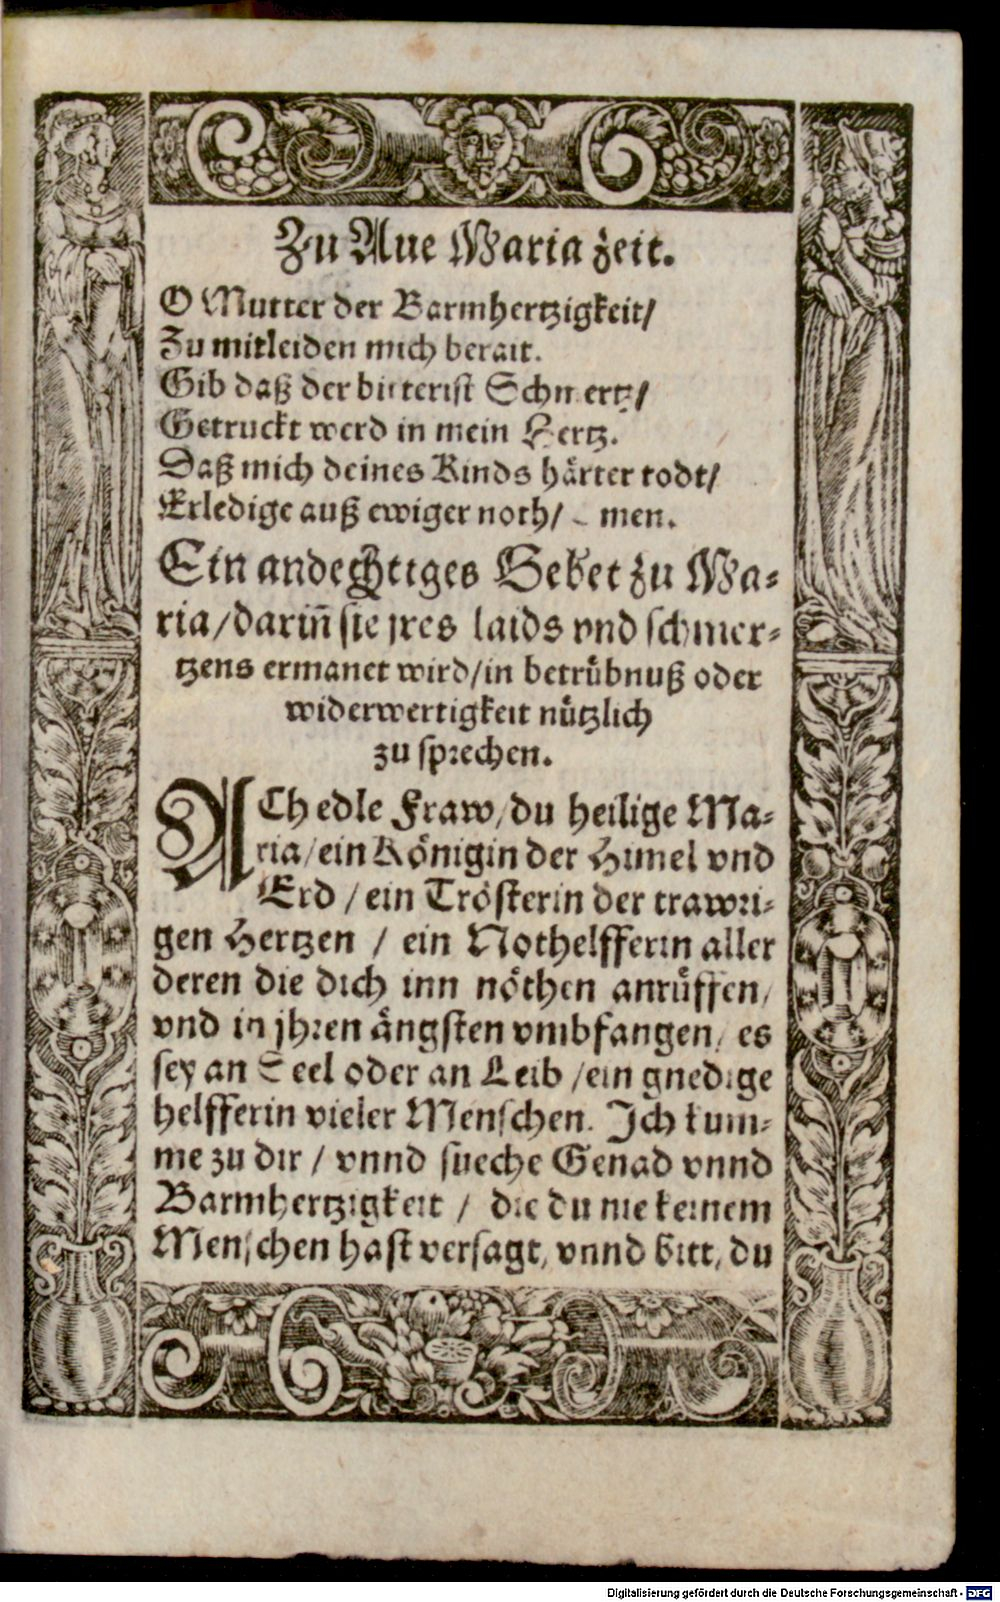 Zu Aue Maria zeit.
O Mutter der Barmhertzigkeit/
Zu mitleiden mich berait.
Gib daß der bitterist Schmertz/
Getruckt werd in mein Hertz.
Daß mich deines Kinds härter todt/
Erledige auß ewiger noth/ men.
Ein andechtiges Gebet zu Ma-
ria/darin̄ sie jres laids vnd schmer-
tzens ermanet wird/in betrübnuß oder
widerwertigkeit nützlich
zu sprechen.
ACh edle Fraw/du heilige Ma-
ria/ein Königin der Himel vnd
Erd / ein Trösterin der trawri-
gen Hertzen / ein Nothelfferin aller
deren die dich inn nöthen anrüffen/
vnd in jhren ängsten vmbfangen/ es
sey an Seel oder an Leib /ein gnedige
helfferin vieler Menschen. Ich kum-
me zu dir / vnnd sueche Genad vnnd
Barmhertzigkeit / die du nie keinem
Menschen hast versagt/ vnnd bitt/ du
Digitalisierung gefördert durch die Deutsche Forschungsgemeinschaft - DFG